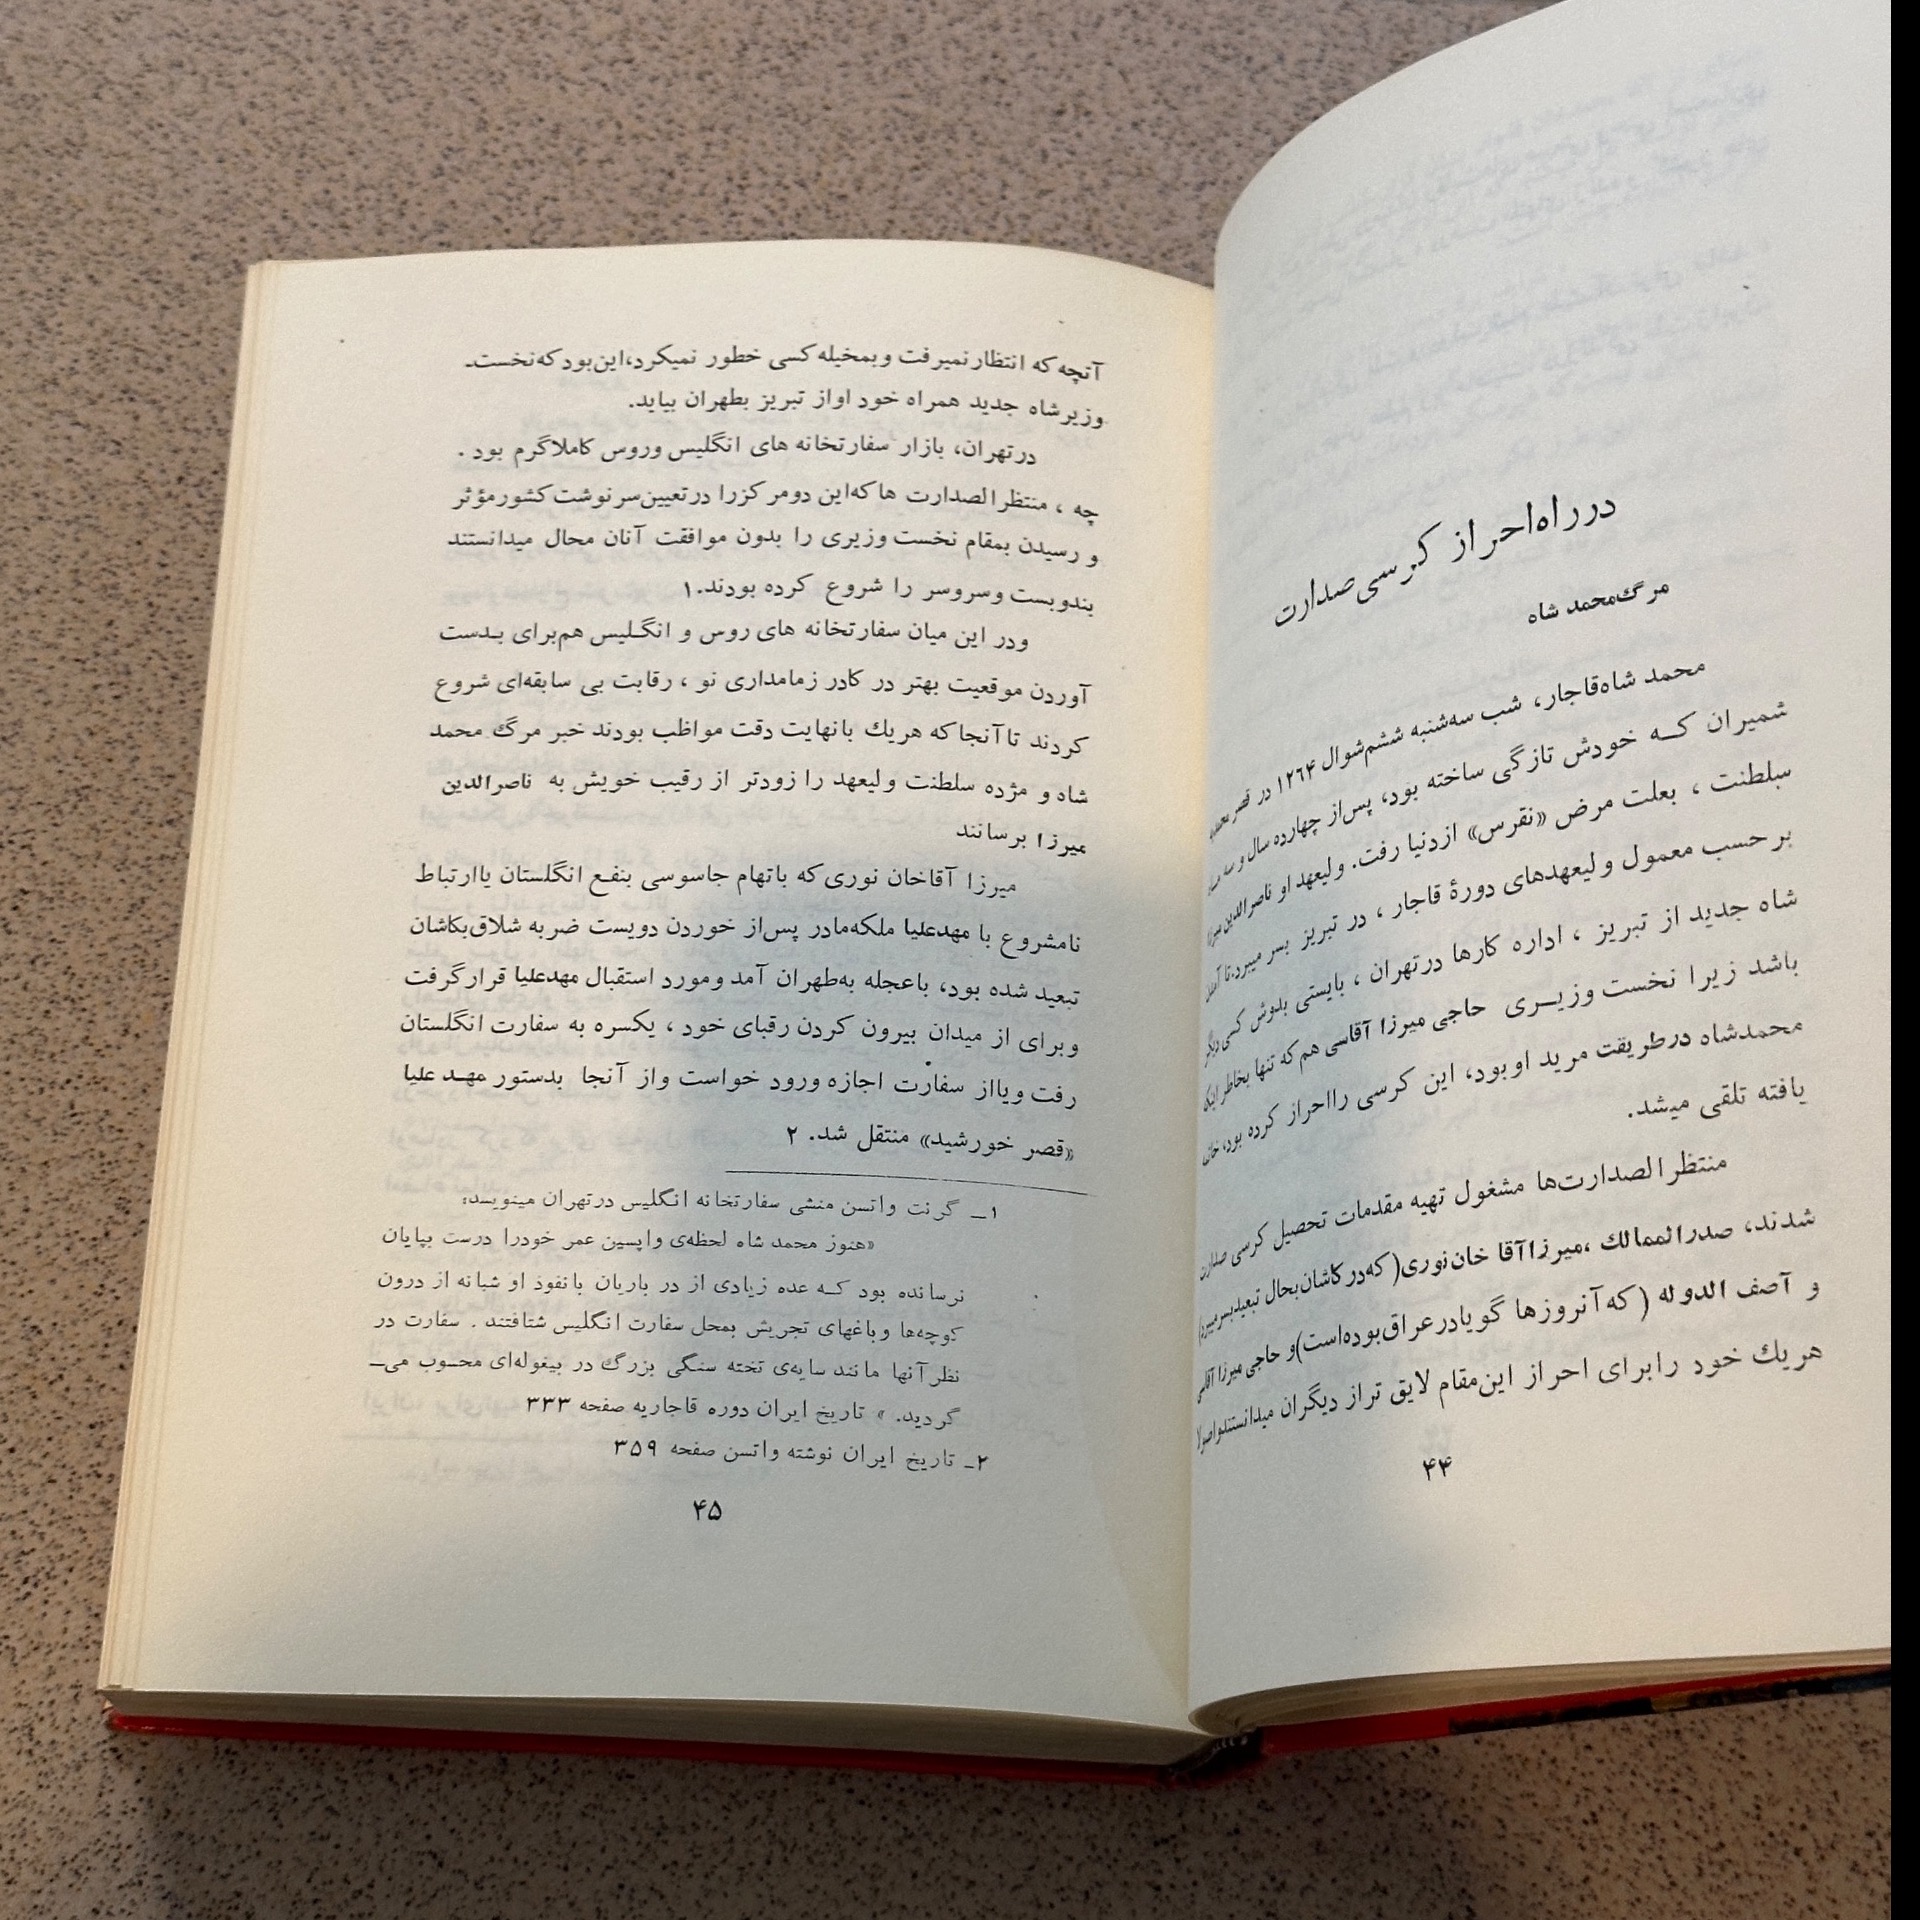 در راه احراز کرسی صدارت
مرگ محمد شاه
محمد شاه قاجار، شب سه‌شنبه ششم شوال ۱۲۶۴ در قصر
شمیران کـه خودش تازگی ساخته بود، پس از چهارده سال و سه
سلطنت ، بعلت مرض «نقرس» از دنیا رفت. ولیعهد او ناصرالدین میرزا
بر حسب معمول ولیعهدهای دورهٔ قاجار ، در تبریز بسر میبرد. تا
شاه جدید از تبریز ، اداره کارها در تهران ، بایستی بدوش کسی دیگر
باشد زیرا نخست وزیـری حاجی میرزا آقاسی هم که تنها بخاطر اینکه
محمدشاه در طریقت مرید او بود، این کرسی را احراز کرده بود،
یافته تلقی میشد.
منتظر الصدارت‌ها مشغول تهیه مقدمات تحصیل کرسی صدارت
شدند، صدر الممالک ، میرزا آقا خان نوری (که در کاشان بحال تبعید بسر میبرد)
و آصف الدوله (که آنروزها گویا در عراق بوده است) و حاجی میرزا آقاسی
هر یک خود را برای احراز این مقام لایق تر از دیگران میدانستند و اصولا
۴۴
آنچه که انتظار نمیرفت و بمخیله کسی خطور نمیکرد، این بود که نخست‌ـ
وزیر شاه جدید همراه خود او از تبریز بطهران بیاید.
در تهران، بازار سفارتخانه های انگلیس و روس کاملا گرم بود .
چه ، منتظر الصدارت ها که این دو مرکز را در تعیین سرنوشت کشور مؤثر
و رسیدن بمقام نخست وزیری را بدون موافقت آنان محال میدانستند
بندوبست و سروسر را شروع کرده بودند.۱
و در این میان سفارتخانه های روس و انگـلیس هم برای بـدست
آوردن موقعیت بهتر در کادر زمامداری نو ، رقابت بی سابقه‌ای شروع
کردند تا آنجا که هر یک با نهایت دقت مواظب بودند خبر مرگ محمد
شاه و مژده سلطنت ولیعهد را زودتر از رقیب خویش به ناصرالدین
میرزا برسانند
میرزا آقاخان نوری که باتهام جاسوسی بنفع انگلستان یا ارتباط
نامشروع با مهدعلیا ملکه‌مادر پس از خوردن دویست ضربه شلاق بکاشان
تبعید شده بود، با عجله به‌طهران آمد و مورد استقبال مهدعلیا قرار گرفت
و برای از میدان بیرون کردن رقبای خود ، یکسره به سفارت انگلستان
رفت و یا از سفارت اجازه ورود خواست و از آنجا بدستور مهـد علیا
«قصر خورشید» منتقل شد. ۲
۱ـ گرنت واتسن منشی سفارتخانه انگلیس در تهران مینویسد:
«هنوز محمد شاه لحظه‌ی واپسین عمر خود را درست بپایان
نرسانده بود کـه عده زیادی از در باریان با نفوذ او شبانه از درون
کوچه‌ها و باغهای تجریش بمحل سفارت انگلیس شتافتند . سفارت در
نظر آنها مانند سایه‌ی تخته سنگی بزرگ در بیغوله‌ای محسوب میـ
گردید. » تاریخ ایران دوره قاجاریه صفحه ۳۳۳
۲ـ تاریخ ایران نوشته واتسن صفحه ۳۵۹
۴۵